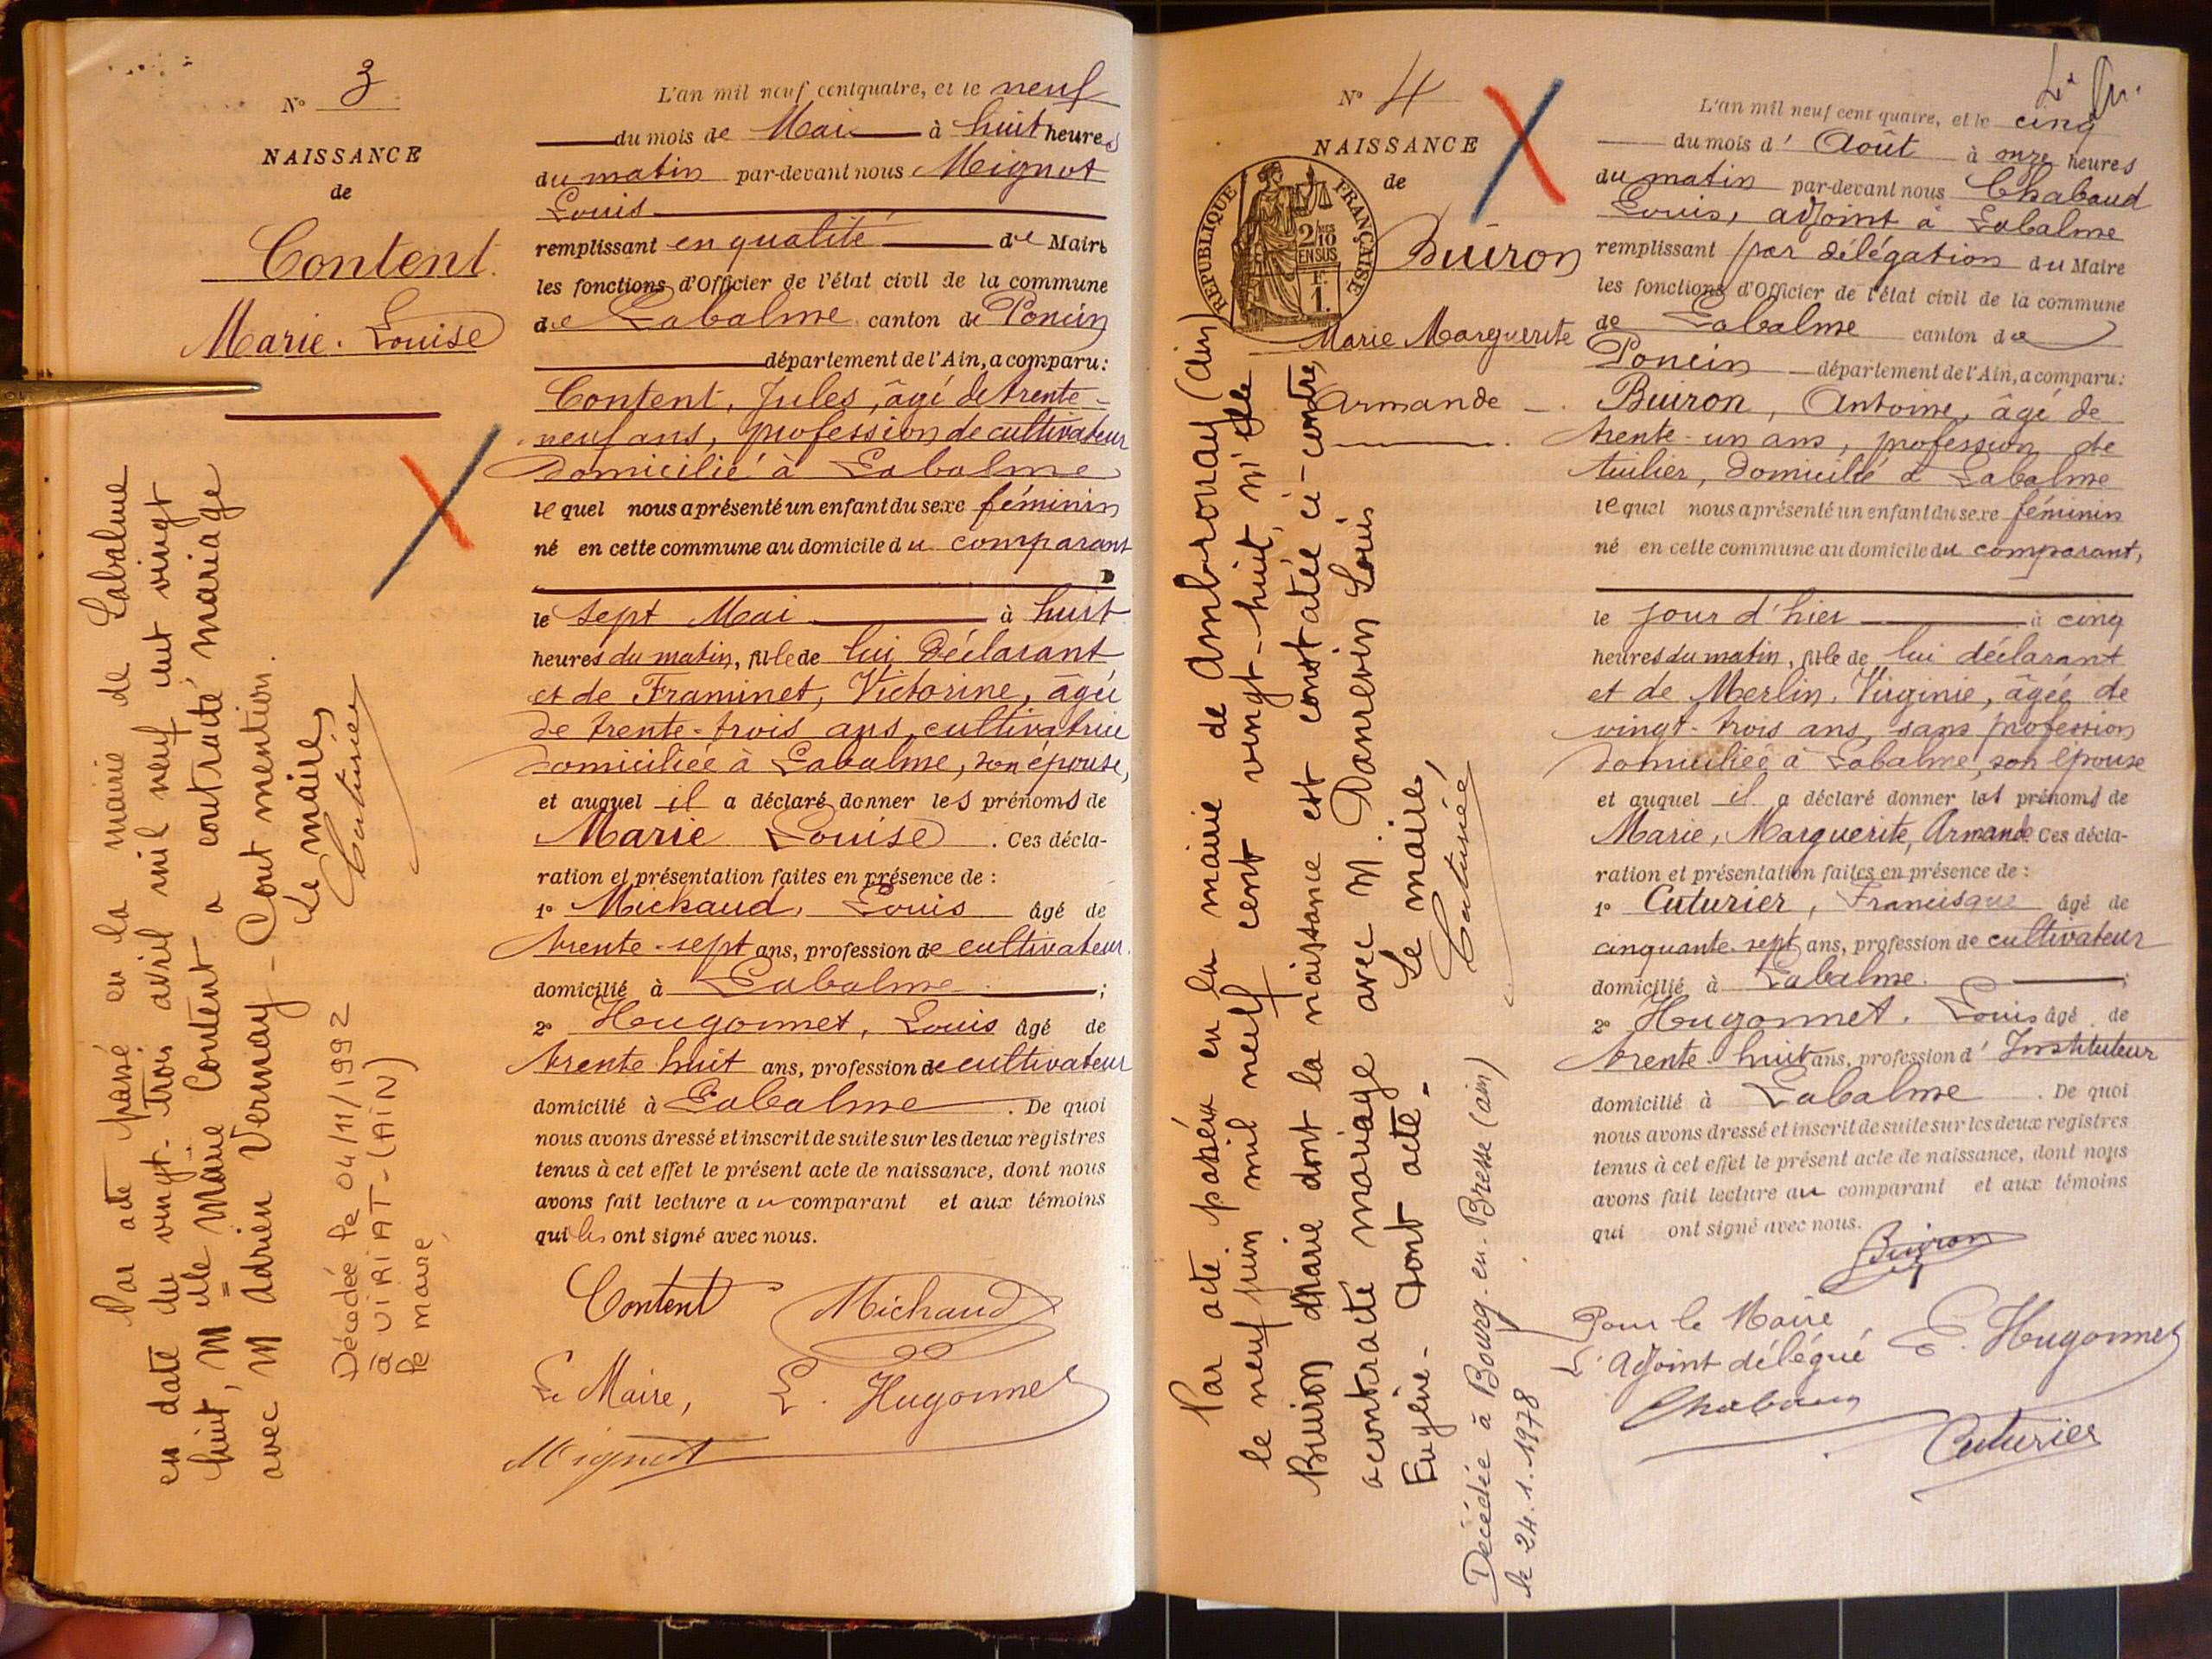 N° 3
NAISSANCE
de
Content
Marie. Louise
L'an mil neuf cent quatre, et le neuf
du mois de Mai à huit heures
du matin par-devant nous Mignot
Louis
remplissant en qualité de Maire
les fonctions d'Officier de l'état civil de la commune
de Labalme canton de Poncin
département de l'Ain, a comparu:
Content, Jules, âgé de trente-
neuf ans, profession de cultivateur
domicilié à Labalme
lequel nous a présenté un enfant du sexe féminin
né en cette commune au domicile du comparant
le sept Mai à huit
heures du matin, fille de lui déclarant
et de Framinet, Victorine, âgée
de trente-trois ans, cultivatrice
domiciliée à Labalme, son épouse,
et auquel il a déclaré donner les prénoms de
Marie Louise. Ces décla-
ration et présentation faites en présence de :
1° Michaud, Louis âgé de
trente-sept ans, profession de cultivateur
domicilié à Labalme ;
2° Hugonnet, Louis âgé de
trente huit ans, profession de cultivateur
domicilié à Labalme. De quoi
nous avons dressé et inscrit de suite sur les deux registres
tenus à cet effet le présent acte de naissance, dont nous
avons fait lecture au comparant et aux témoins
qui les ont signé avec nous.
Content Michaud
Le Maire, L. Hugonnet
Mignot
Par acte passé en la mairie de Labalme
en date du vingt-trois avril mil neuf cent vingt
huit, Mlle Marie Content a contracté mariage
avec M Adrien Vermay - Dont mention.
Le maire,
Cuturier
Décédée le 04/11/1992
à VIRIAT - (AIN)
le maire,
N° 4
NAISSANCE
de
REPUBLIQUE FRANÇAISE
2/10
EN SUS
F.
1.
Buiron
Marie Marguerite
Armande
L'an mil neuf cent quatre, et le cinq
du mois d' Août à onze heures
du matin par-devant nous Chabaud
Louis, adjoint à Labalme
remplissant par délégation du Maire
les fonctions d'Officier de l'état civil de la commune
de Labalme canton de
Poncin département de l'Ain, a comparu:
Buiron, Antoine, âgé de
trente-un ans, profession de
tuilier, domicilié à Labalme
lequel nous a présenté un enfant du sexe féminin
né en cette commune au domicile du comparant,
le jour d'hier à cinq
heures du matin, fille de lui déclarant
et de Merlin, Virginie, âgée de
vingt-trois ans, sans profession
domiciliée à Labalme, son épouse
et auquel il a déclaré donner les prénoms de
Marie, Marguerite, Armande. Ces décla-
ration et présentation faites en présence de :
1° Cuturier, Francisque âgé de
cinquante-sept ans, profession de cultivateur
domicilié à Labalme. ;
2° Hugonnet, Louis âgé de
trente-huit ans, profession d' Instituteur
domicilié à Labalme. De quoi
nous avons dressé et inscrit de suite sur les deux registres
tenus à cet effet le présent acte de naissance, dont nous
avons fait lecture au comparant et aux témoins
qui ont signé avec nous.
Buiron
Pour le Maire
L'adjoint délégué L. Hugonnet
Chabaud
Cuturier
Par acte passé en la mairie de Ambronay (Ain)
le neuf juin mil neuf cent vingt-huit, Mlle
Buiron Marie dont la naissance est constatée ci-contre,
a contracté mariage avec M. Danrevin Louis
Eugène - Dont acte -
Le maire,
Cuturier
Décédée à Bourg-en-Bresse (ain)
le 24.1.1978